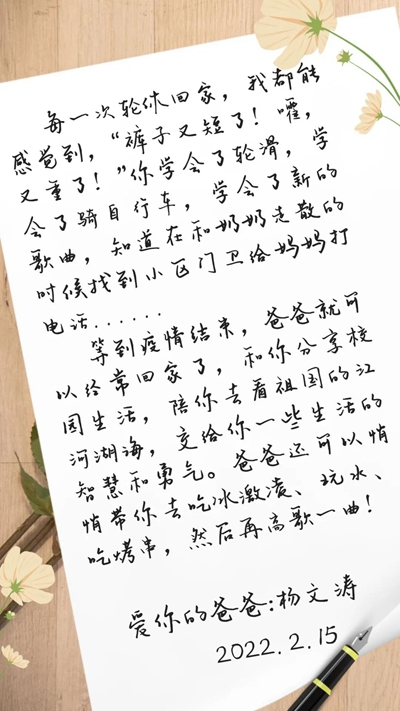 每一次轮休回家，我都能
感觉到，“裤子又短了！嚯，
又重了！”你学会了轮滑，学
会了骑自行车，学会了新的
歌曲，知道在和奶奶走散的
时候找到小区门卫给妈妈打
电话......
等到疫情结束，爸爸就可
以经常回家了，和你分享校
园生活，陪你去看祖国的江
河湖海，交给你一些生活的
智慧和勇气。爸爸还可以悄
悄带你去吃冰激凌、玩水、
吃烤串，然后再高歌一曲！
爱你的爸爸：杨文涛
2022.2.15